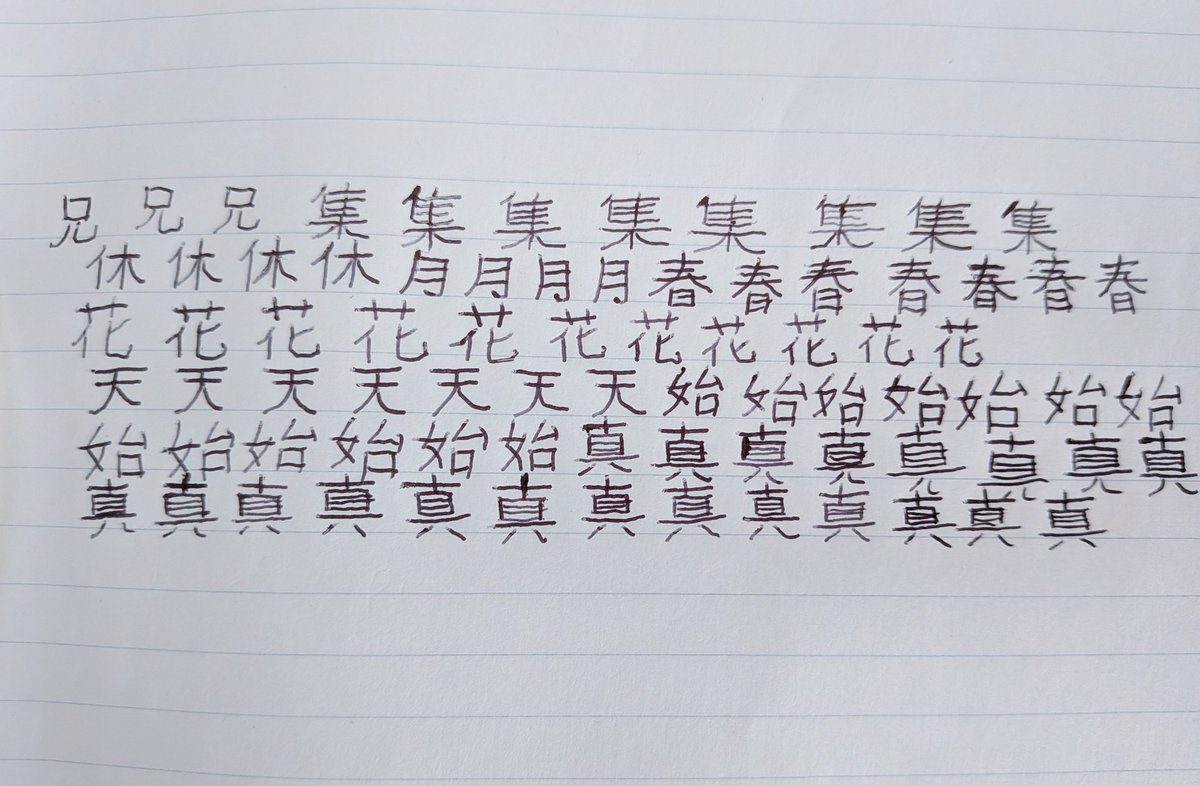 兄兄兄集集集集集集集集
休休休休月月月月春春春春春春春
花花花花花花花花花花花
天天天天天天天始始始始始始始
始始始始始始真真真真真真真真
真真真真真真真真真真真真真